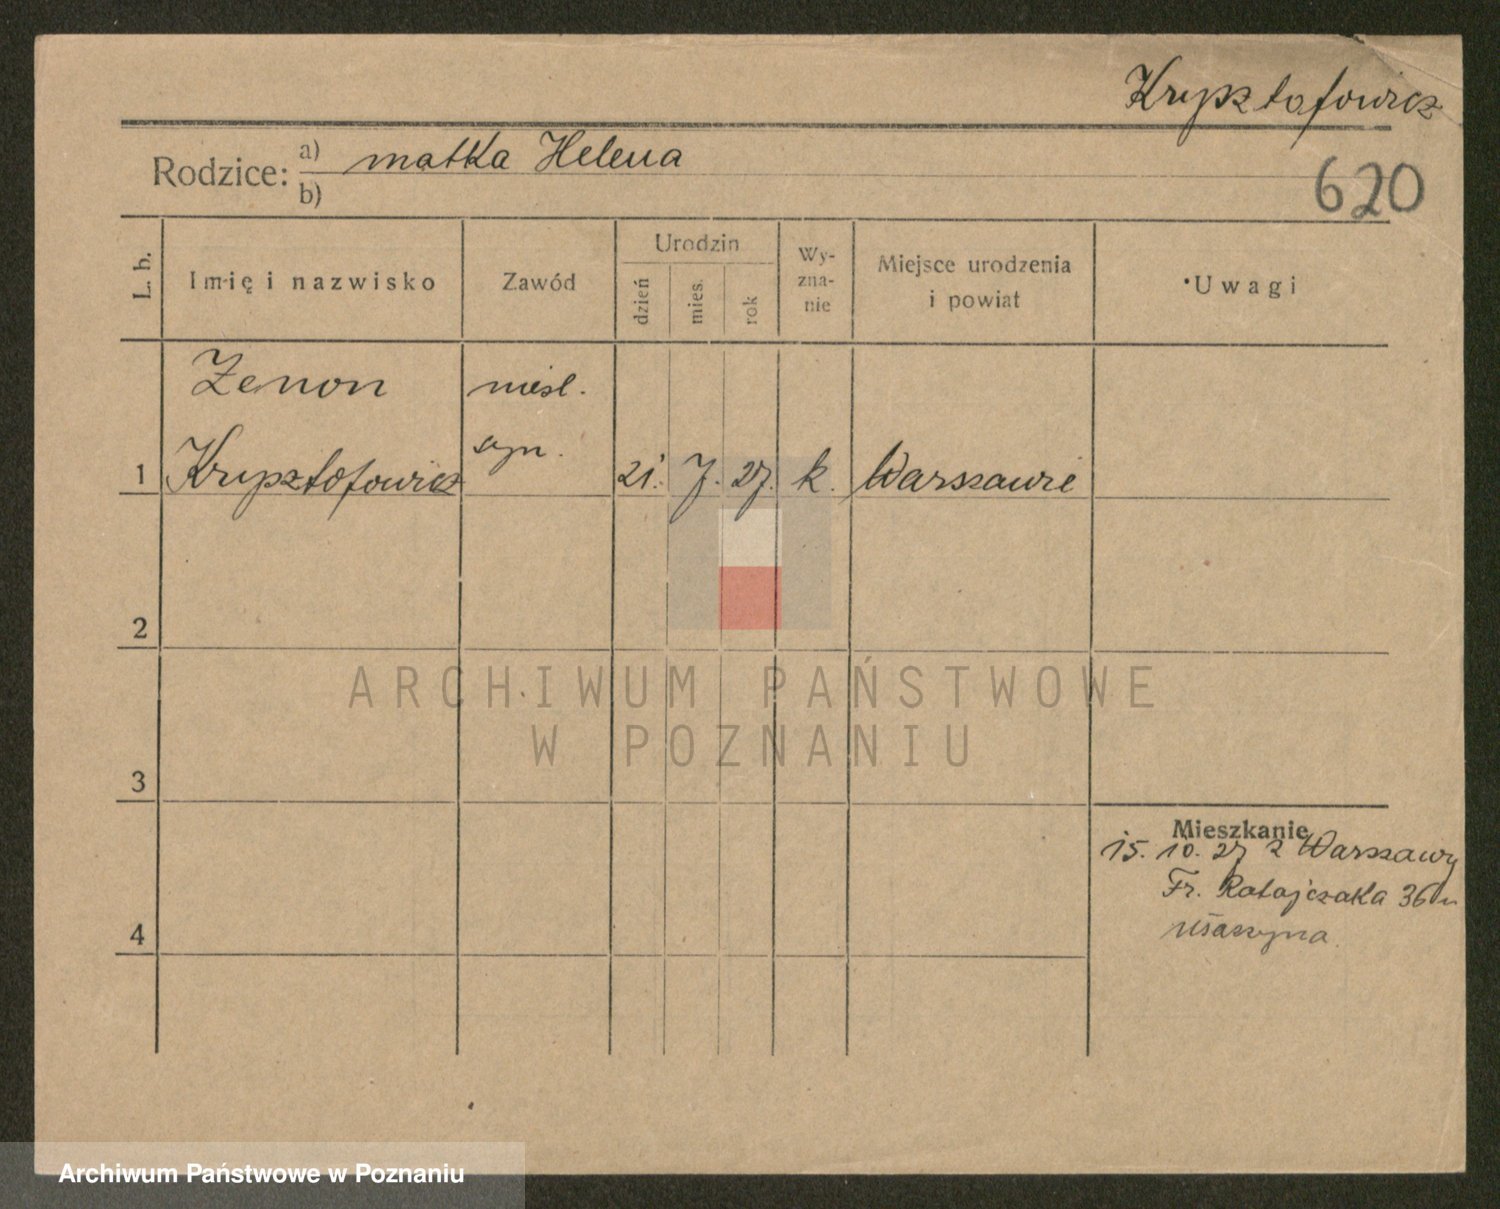 Krysztofowicz
Rodzice: a) matka Helena
b)
620
L. b.
Imię i nazwisko
Zawód
Urodzin
dzień
mies.
rok
Wy-
zna-
nie
Miejsce urodzenia
i powiat
Uwagi
Zenon
nieśl.
syn.
1 Krysztofowicz 21. 7. 27. k. Warszawie
2
3
4
Mieszkanie
15. 10. 27 z Warszawy
Fr. Ratajczaka 36
ARCHIWUM PAŃSTWOWE
W POZNANIU
Archiwum Państwowe w Poznaniu